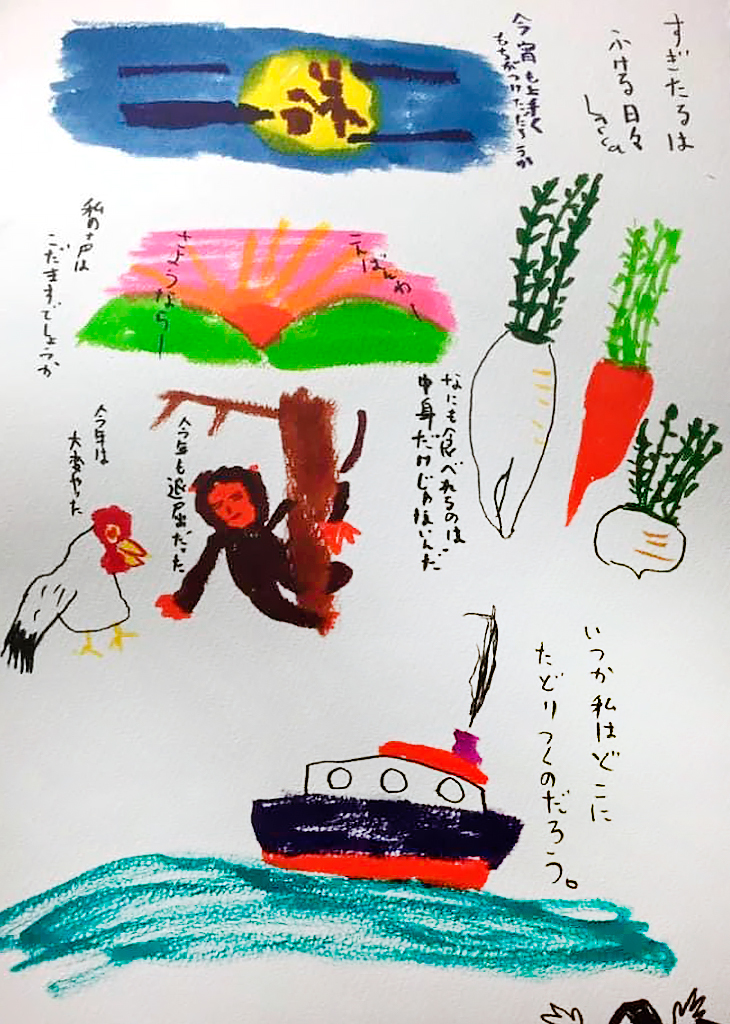 すぎたるは
ふける日々
今宵も上手く
もちがつけただろうか
こんばんわー
さようならー
私の声は
こだますでしょうか
なにも食べれるのは
中身だけじゃないんだ
今年も退屈だった
今年は
大変やった
いつか私はどこに
たどりつくのだろう。